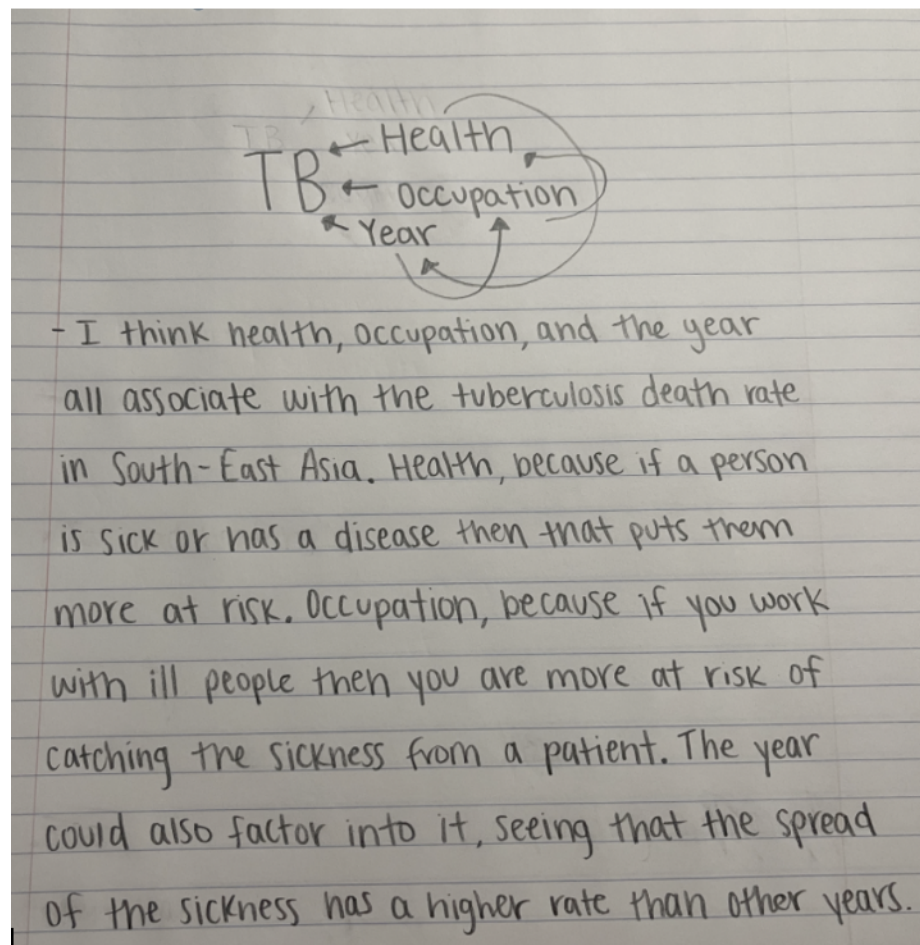 Health
TB
Occupation
Year
- I think health, occupation, and the year
all associate with the tuberculosis death rate
in South-East Asia. Health, because if a person
is sick or has a disease then that puts them
more at risk. Occupation, because if you work
with ill people then you are more at risk of
catching the sickness from a patient. The year
could also factor into it, seeing that the spread
of the sickness has a higher rate than other years.